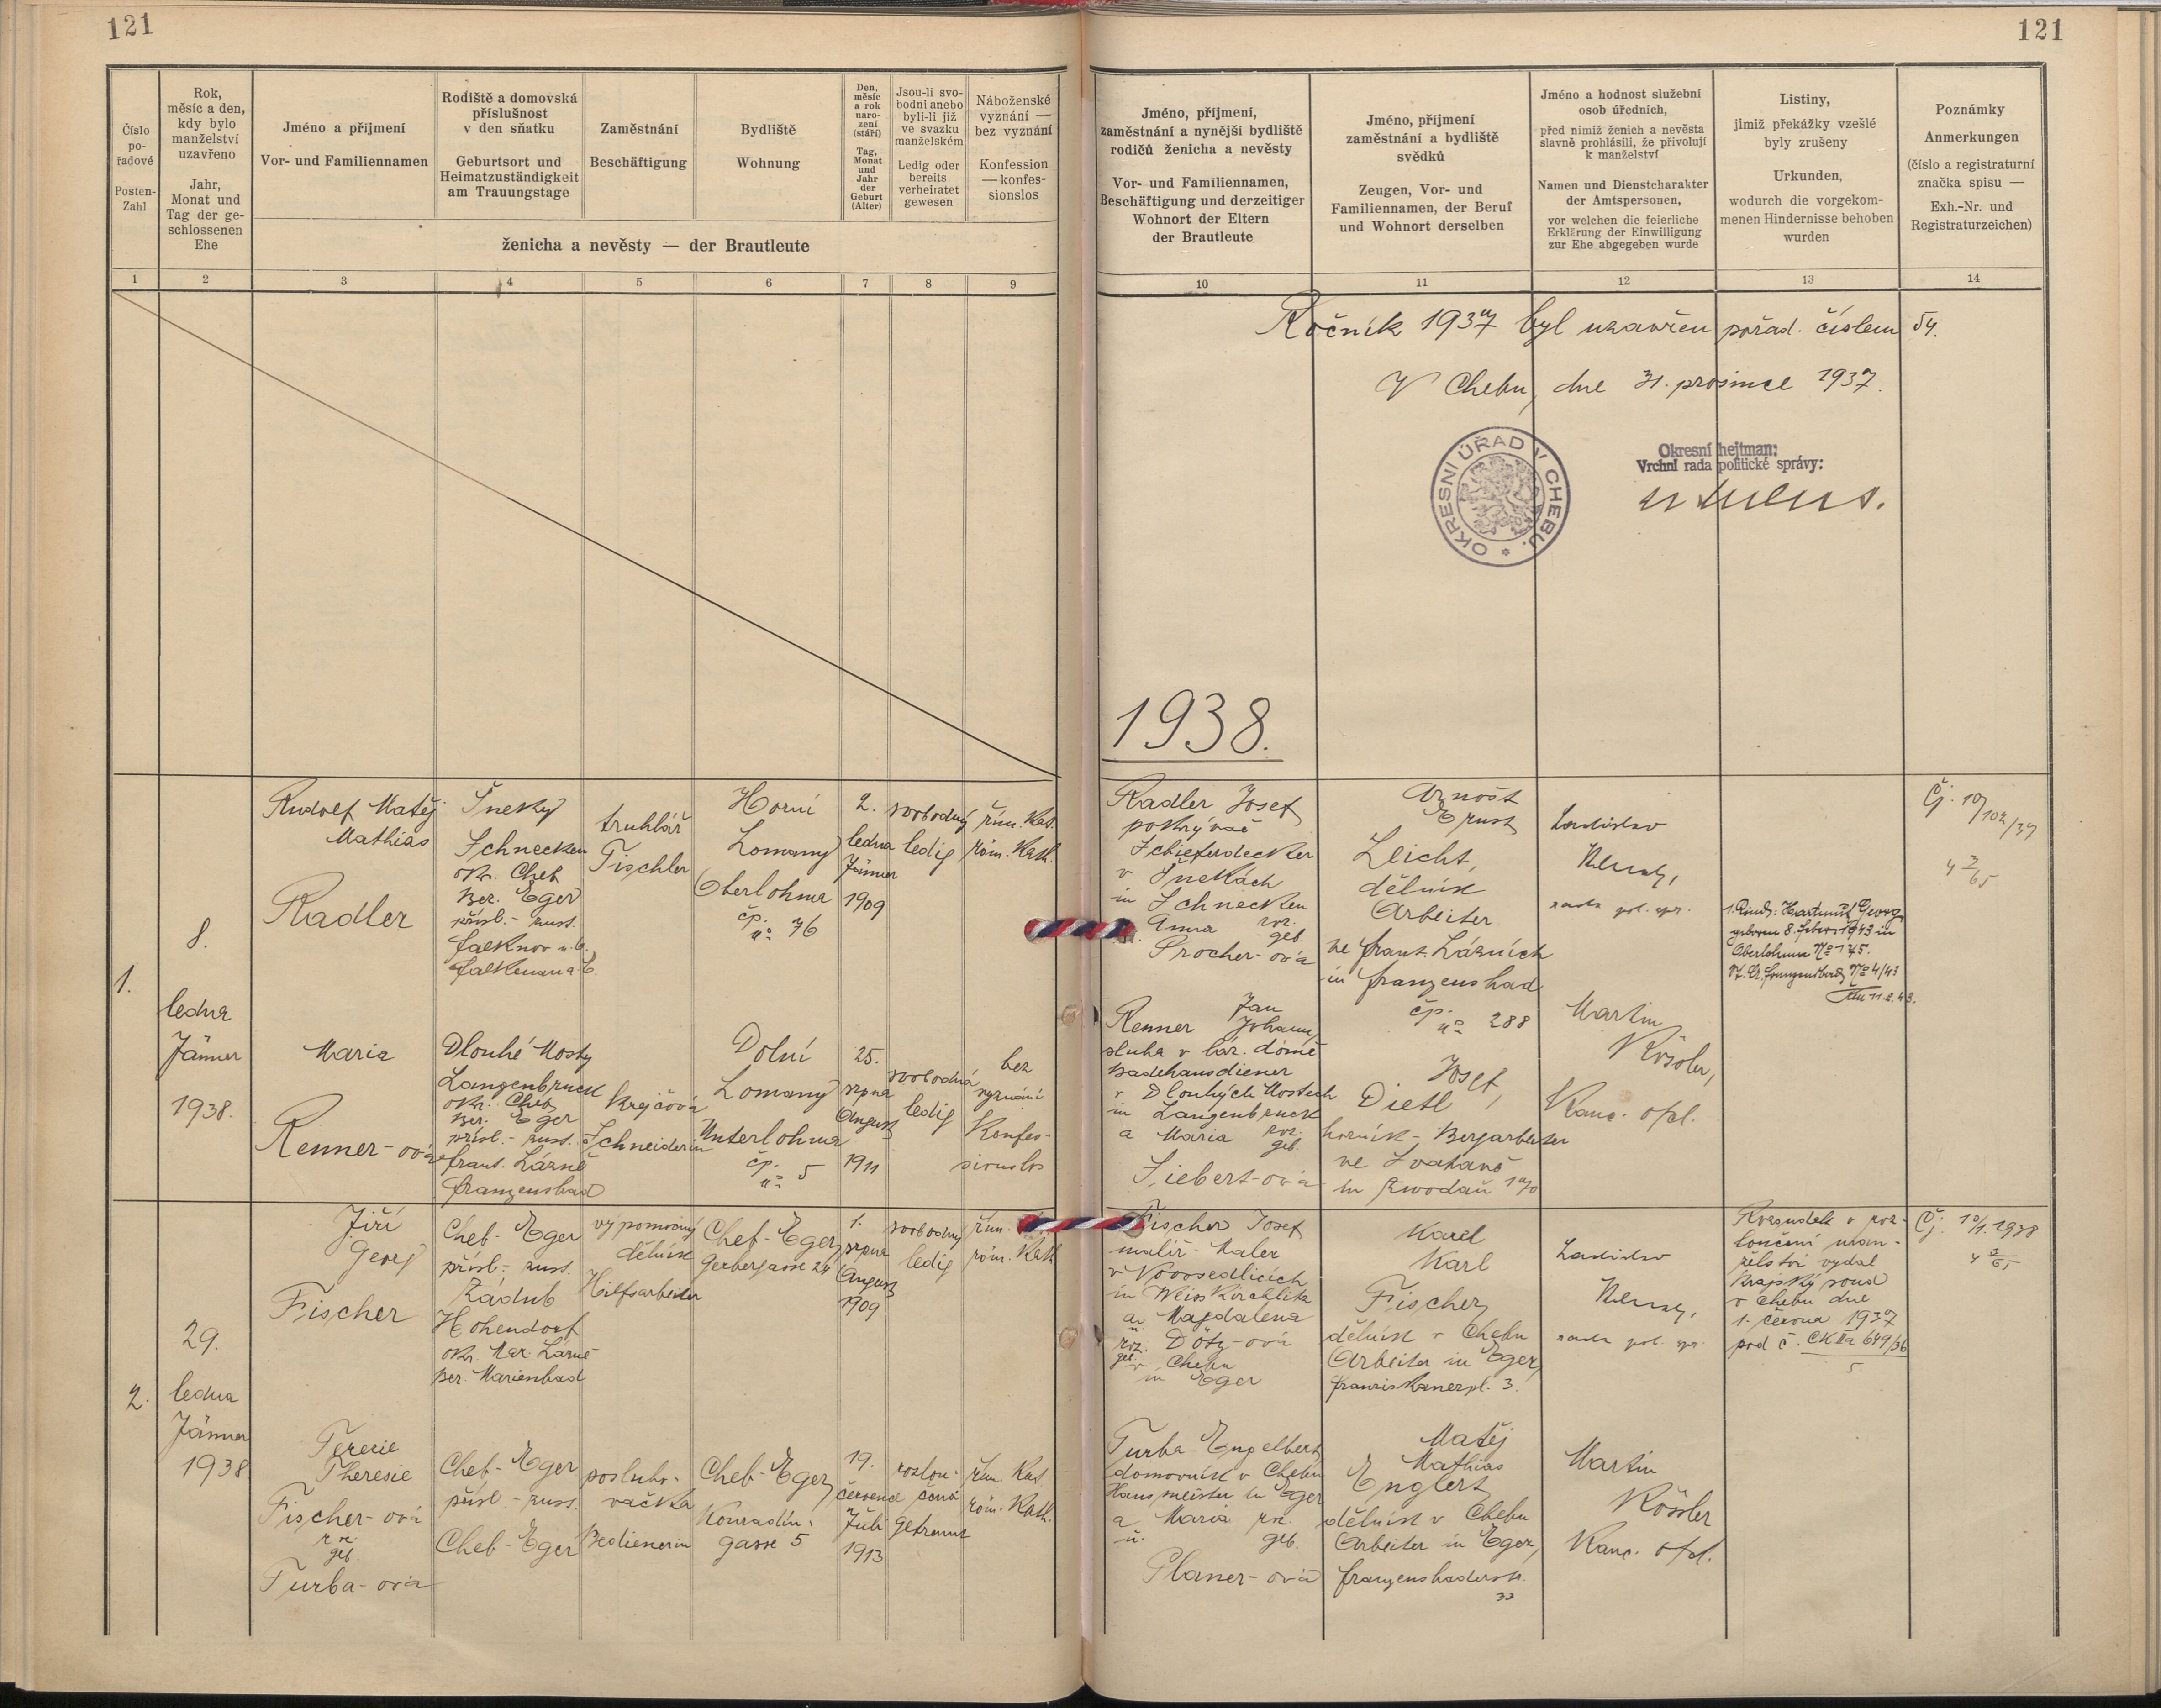 121
121
Číslo
po-
řadové
Posten-
Zahl
Rok,
měsíc a den,
kdy bylo
manželství
uzavřeno
Jahr,
Monat und
Tag der ge-
schlossenen
Ehe
Jméno a příjmení
Vor- und Familiennamen
Rodiště a domovská
příslušnost
v den sňatku
Geburtsort und
Heimatzuständigkeit
am Trauungstage
Zaměstnání
Beschäftigung
Bydliště
Wohnung
Den,
měsíc
a rok
naro-
zení
(stáří)
Tag,
Monat
und
Jahr
der
Geburt
(Alter)
Jsou-li svo-
bodni anebo
byli-li již
ve svazku
manželském
Ledig oder
bereits
verheiratet
gewesen
Náboženské
vyznání —
bez vyznání
Konfession
— konfes-
sionslos
ženicha a nevěsty — der Brautleute
Jméno, příjmení,
zaměstnání a nynější bydliště
rodičů ženicha a nevěsty
Vor- und Familiennamen,
Beschäftigung und derzeitiger
Wohnort der Eltern
der Brautleute
Jméno, příjmení
zaměstnání a bydliště
svědků
Zeugen, Vor- und
Familiennamen, der Beruf
und Wohnort derselben
Jméno a hodnost služební
osob úředních,
před nimiž ženich a nevěsta
slavně prohlásili, že přivolují
k manželství
Namen und Dienstcharakter
der Amtspersonen,
vor welchen die feierliche
Erklärung der Einwilligung
zur Ehe abgegeben wurde
Listiny,
jimiž překážky vzešlé
byly zrušeny
Urkunden,
wodurch die vorgekom-
menen Hindernisse behoben
wurden
Poznámky
Anmerkungen
(číslo a registraturní
značka spisu —
Exh.-Nr. und
Registraturzeichen)
1 2 3 4 5 6 7 8 9
10 11 12 13 14
Ročník 1937 byl uzavřen pořad. číslem 54.
V Chebu, dne 31. prosince 1937.
OKRESNÍ ÚŘAD V CHEBU. *
Okresní hejtman:
Vrchní rada politické správy:
1938.
1.
8.
ledna
Jänner
1938.
Rudolf Matěj
Mathias
Radler
Šneky
Schnecken
okr. Cheb
Bez. Eger
přísl. - zust.
Falknov n. O.
Falkenau a. E.
truhlář
Tischler
Horní
Lomany
Oberlohma
čp.
no 76
2.
ledna
Jänner
1909
svobodný
ledig
řím. kat.
röm. kath.
Radler Josef
pokrývač
Schieferdecker
v Šnekách
in Schnecken
Anna roz.
geb.
Procher-ová
Arnošt
Ernst
Leicht,
dělník
Arbeiter
ve Frant. Lázních
in Franzensbad
čp.
no 288
Ladislav
rada pol. spr.
1. Kind: Hartmut Georg
geboren 8. Feber 1943 in
Oberlohma No 175.
St. A. Franzensbad No 4/43
Čj. 10/102/37
Maria
Renner-ová
Dlouhé Mosty
Langenbruck
okr. Cheb
Bez. Eger
přísl. - zust.
Frant. Lázně
Franzensbad
krejčová
Schneiderin
Dolní
Lomany
Unterlohma
čp.
no 5
25.
srpna
August
1911
svobodná
ledig
bez
vyznání
Konfes-
sionslos
Renner Jan
Johann,
sluha v láz. domě
Badehausdiener
v Dlouhých Mostech
in Langenbruck
a Maria roz.
geb.
Siebert-ová
Josef,
Dietl,
horník - Bergarbeiter
ve Svatavě
in Zwodau 170
Martin
Rössler,
Kanc. ofcl.
2.
29.
ledna
Jänner
1938
Jiří
Georg
Fischer
Cheb - Eger
přísl. - zust.
Zádub
Hohendorf
okr. Mar. Lázně
Bez. Marienbad
výpomocný
dělník
Hilfsarbeiter
Cheb - Eger,
Gerbergasse 24
1.
srpna
August
1909
svobodný
ledig
řím.
röm. kath
Fischer Josef
malíř - Maler
v Novosedlicích
in Weisskirchlitz
a Magdalena
u.
roz. Dötz-ová
geb.
v Chebu
in Eger
Karel
Karl
Fischer,
dělník v Chebu
Arbeiter in Eger,
Franziskanerpl. 3.
Ladislav
rada pol. spr.
Rozsudek v roz-
loučení man-
želství vydal
Krajský soud
v Chebu dne
1. června 1937
pod č. CK IIa 649/36
5
Čj. 10/1. 1938
Terezie
Theresie
Fischer-ová
roz.
geb.
Turba-ová
Cheb - Eger
přísl. - zust.
Cheb - Eger
posluho-
vačka
Bedienerin
Cheb - Eger,
Konradin-
gasse 5
19.
července
Juli
1913
rozlou-
čená
getrennt
řím. kat
röm. kath.
Turba Engelbert,
domovník v Chebu
Hausmeister in Eger
a Maria roz.
u. geb.
Planer-ová
Matěj
Mathias
Englert,
dělník v Chebu
Arbeiter in Eger,
Franzensbaderstr.
33
Martin
Rössler
Kanc. ofcl.